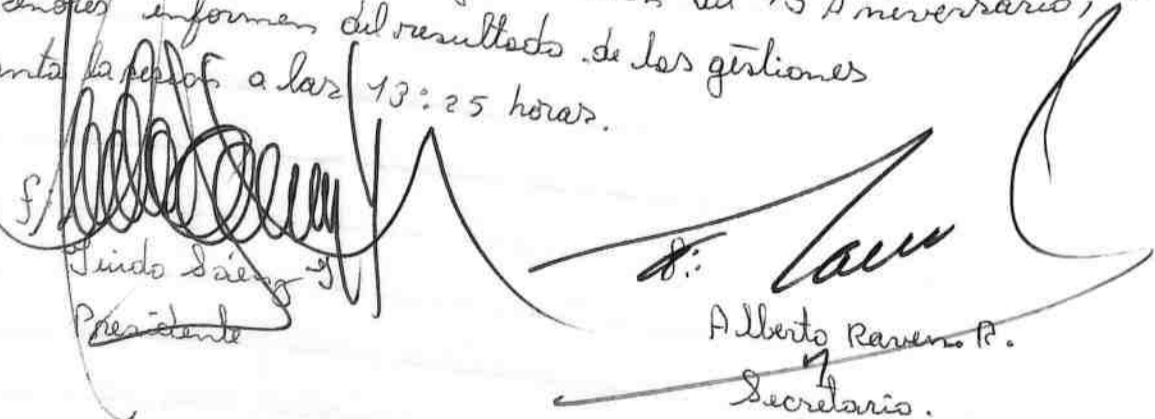 informen del resultado de las gestiones
la sesión a las 13:25 horas.
f:
Guido Sáenz G
Presidente
f:
Alberto Raven. R.
Secretario.